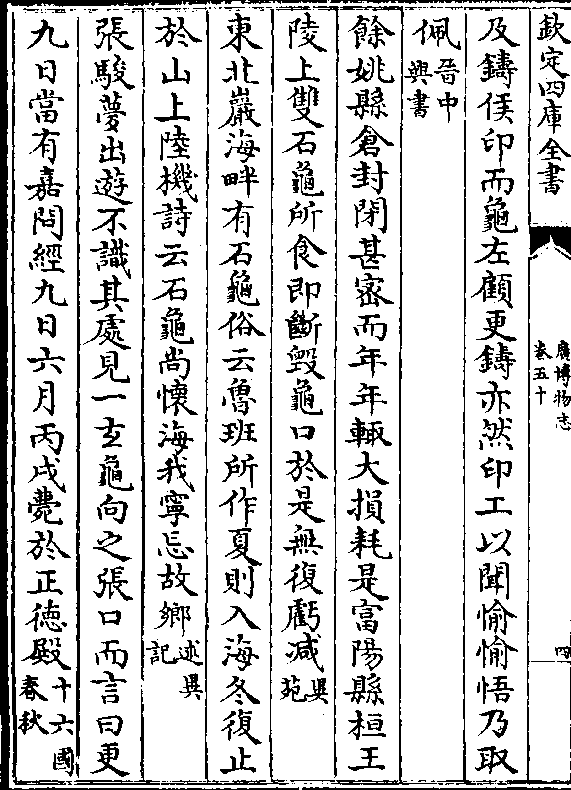 欽定四庫全書
廣博物志
卷五十
四
及鑄侯印而龜左顧更鑄亦然印工以聞愉愉悟乃取
佩晉中
興書
餘姚縣倉封閉甚密而年年輙大損耗是富陽縣桓王
陵上雙石龜所食即斷毀龜口於是無復虧減異
苑
東北巖海畔有石龜俗云魯班所作夏則入海冬復止
於山上陸機詩云石龜尚懷海我寧忘故鄉述異
記
張駿夢出遊不識其處見一玄龜向之張口而言曰更
九日當有嘉問經九日六月丙戌薨於正德殿十六國
春秋